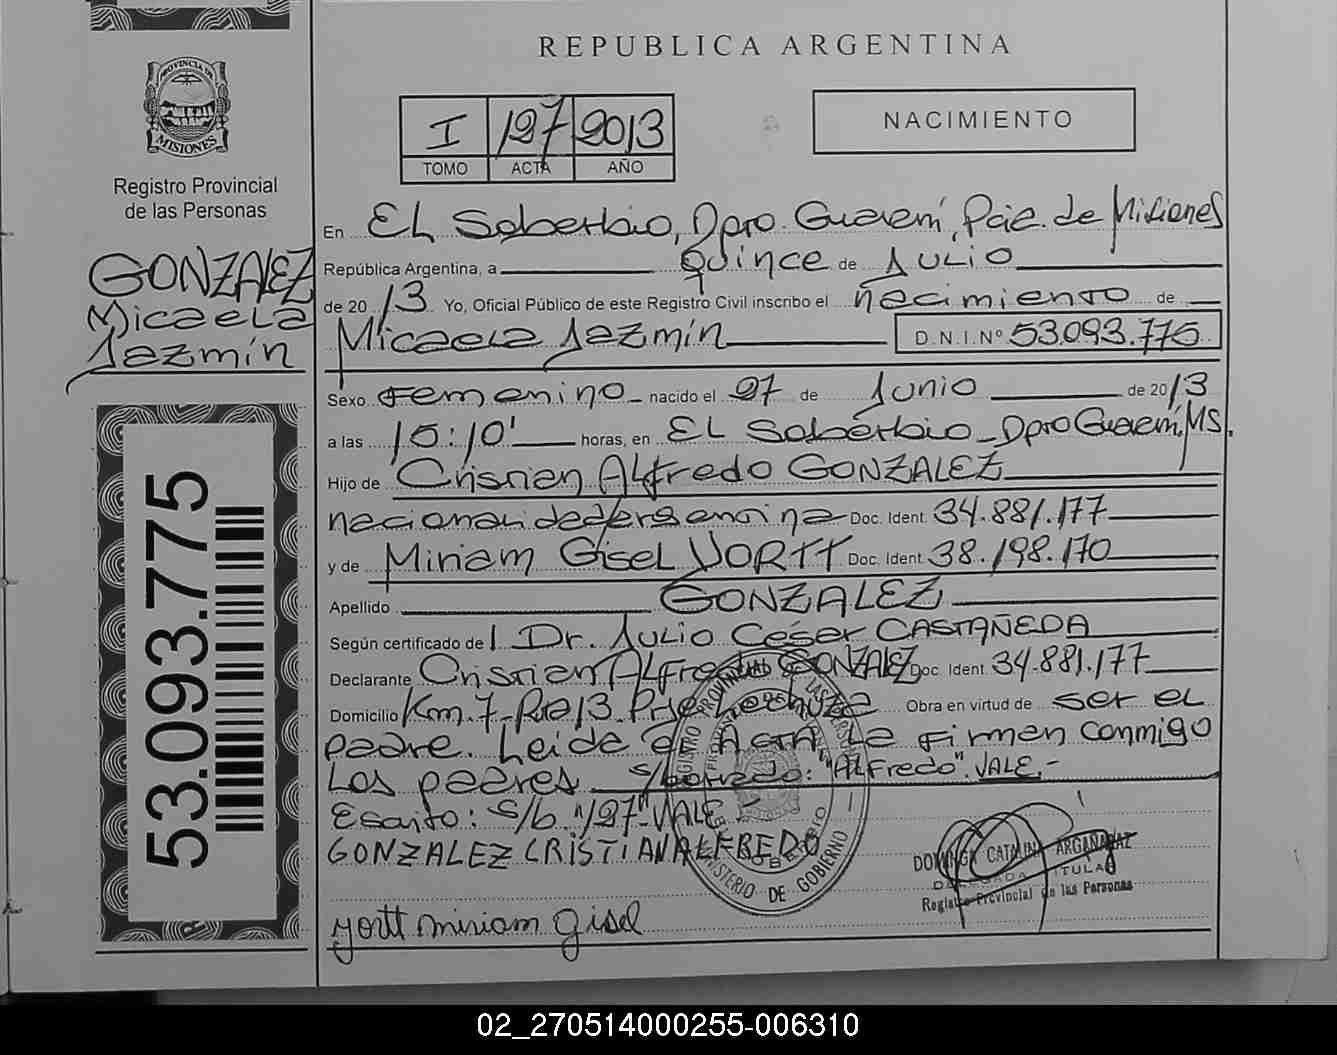 REPUBLICA ARGENTINA
PROVINCIA DE
MISIONES
Registro Provincial
de las Personas
I 127 2013
TOMO ACTA AÑO
NACIMIENTO
GONZALEZ
Micaela
Jazmín
53.093.775
En El Soberbio, Dpro. Guaraní, Pcia. de Misiones
República Argentina, a quince de Julio
de 2013 Yo, Oficial Público de este Registro Civil inscribo el nacimiento de
Micaela Jazmín D.N.I.Nº 53.093.775
Sexo Femenino nacido el 27 de Junio de 2013
a las 15:10' horas, en El Soberbio - Dpto Guaraní, MS.
Hijo de Cristian Alfredo GONZALEZ
nacionalidad argentina Doc. Ident. 34.881.177
y de Miriam Gisel YORTT Doc. Ident. 38.198.170
Apellido GONZALEZ
Según certificado del Dr. Julio César CASTAÑEDA
Declarante Cristian Alfredo GONZALEZ Doc. Ident. 34.881.177
Domicilio Km. 7 - Rta 13 Pje Lechuza Obra en virtud de ser el
padre. Leida el ACTA la firman conmigo
los padres. s/borrado: "Alfredo". VALE.-
Escrito: s/b "127" VALE -
GONZALEZ CRISTIAN ALFREDO
yortt miriam gisel
REGISTRO PROVINCIAL DE LAS PERSONAS
MINISTERIO DE GOBIERNO
CATALINA ARGAÑARAZ
DELEGADA TITULAR
Registro Provincial de las Personas
02_270514000255-006310